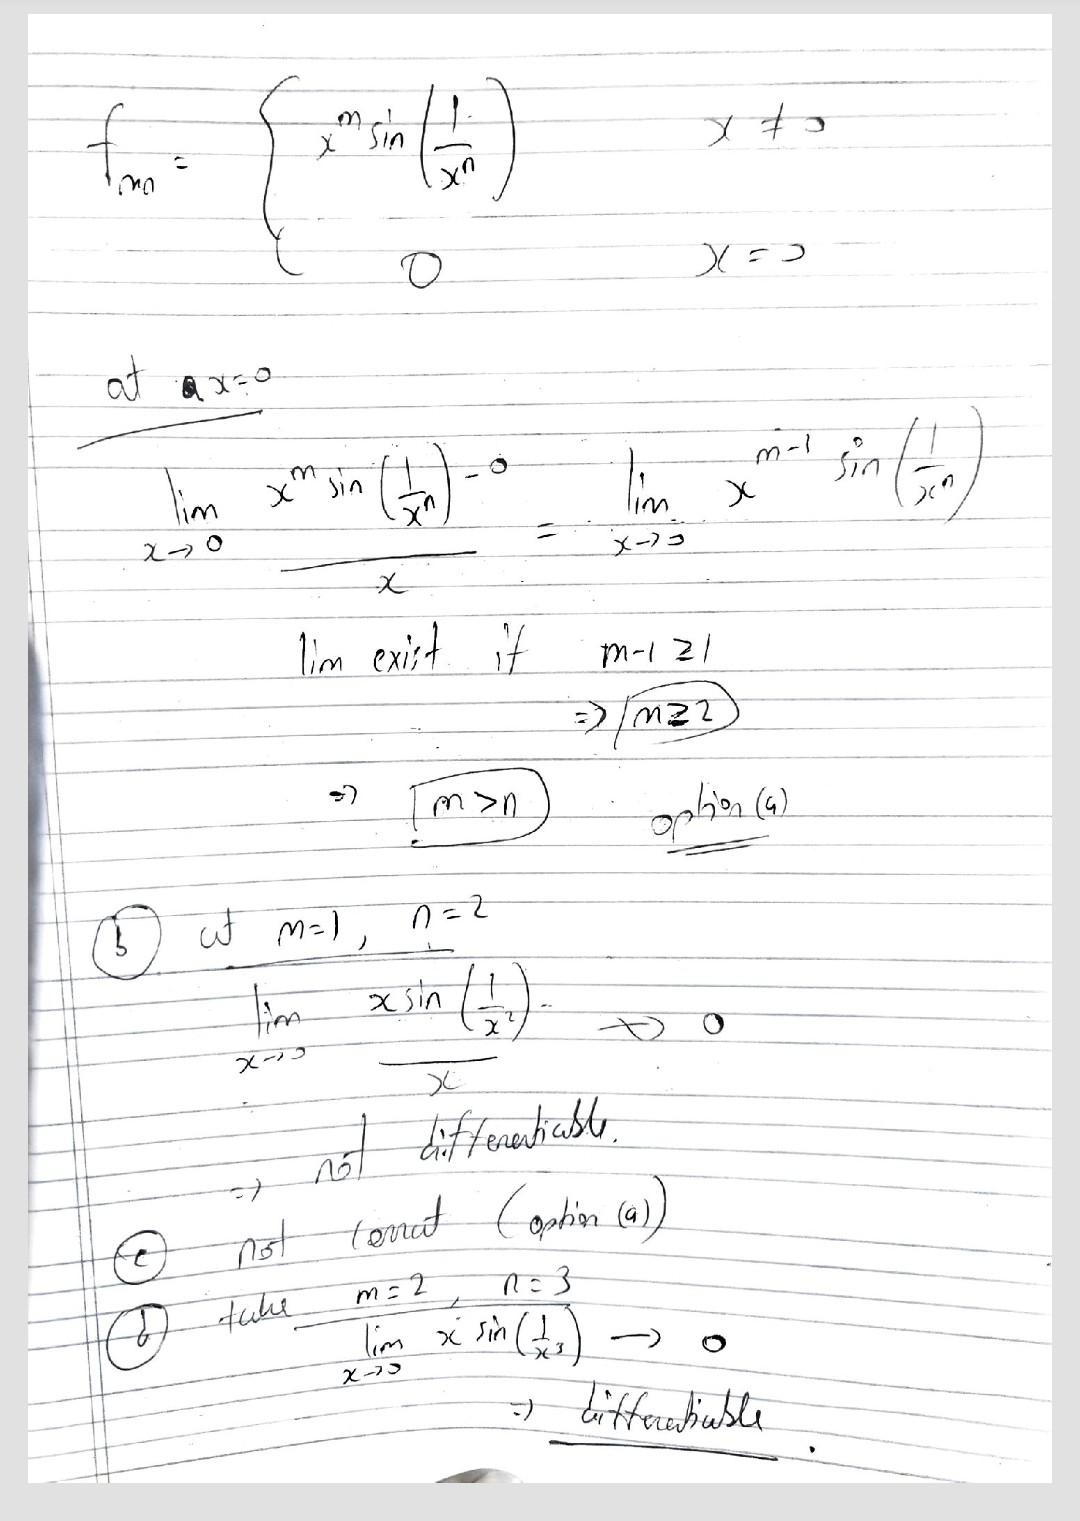 f_mn = { x^m sin(1/x^n)    x ≠ 0
0    x = 0
at x=0
lim x→0 (x^m sin(1/x^n) - 0)/x = lim x→0 x^(m-1) sin(1/x^n)
lim exist if m-1 ≥ 1
=> m ≥ 2
=> m > n    option (a)
(b) at m=1, n=2
lim x→0 (x sin(1/x^2))/x ↛ 0
=> not differentiable.
(c) not correct (option (a))
(d) take m=2, n=3
lim x→0 x sin(1/x^3) → 0
=> differentiable.